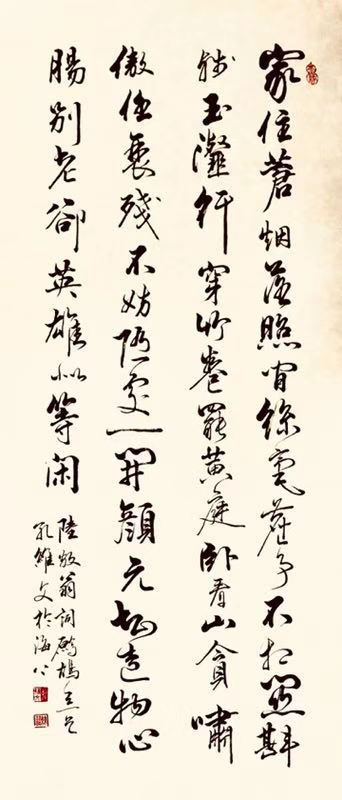 家住蒼烟落照間絲毫塵事不相關斟
殘玉瀣行穿竹卷罷黄庭卧看山貪嘯
傲任衰殘不妨隨處一開顏元知造物心
腸别老卻英雄似等閑
陸放翁詞鷓鴣天
孔維文於海